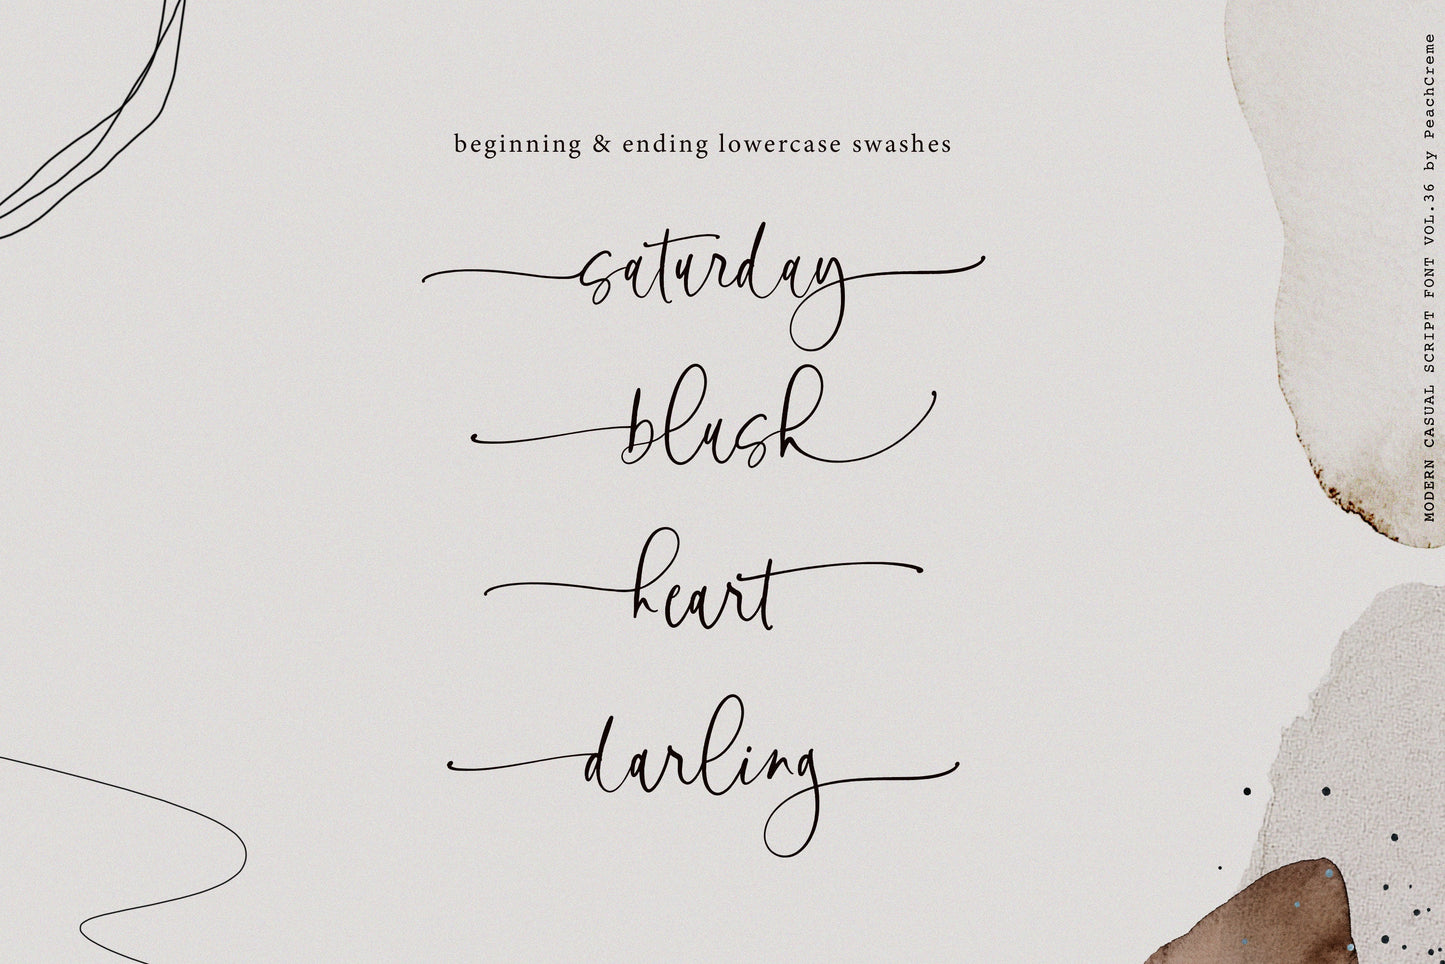 beginning & ending lowercase swashes
saturday
blush
heart
darling
MODERN CASUAL SCRIPT FONT VOL.36 by PeachCreme